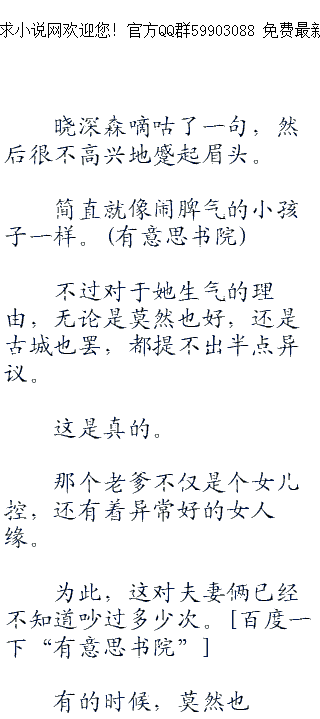 求小说网欢迎您！官方QQ群59903088 免费最新
晓深森嘀咕了一句，然
后很不高兴地蹙起眉头。
简直就像闹脾气的小孩
子一样。(有意思书院)
不过对于她生气的理
由，无论是莫然也好，还是
古城也罢，都提不出半点异
议。
这是真的。
那个老爹不仅是个女儿
控，还有着异常好的女人
缘。
为此，这对夫妻俩已经
不知道吵过多少次。[百度一
下“有意思书院”]
有的时候，莫然也